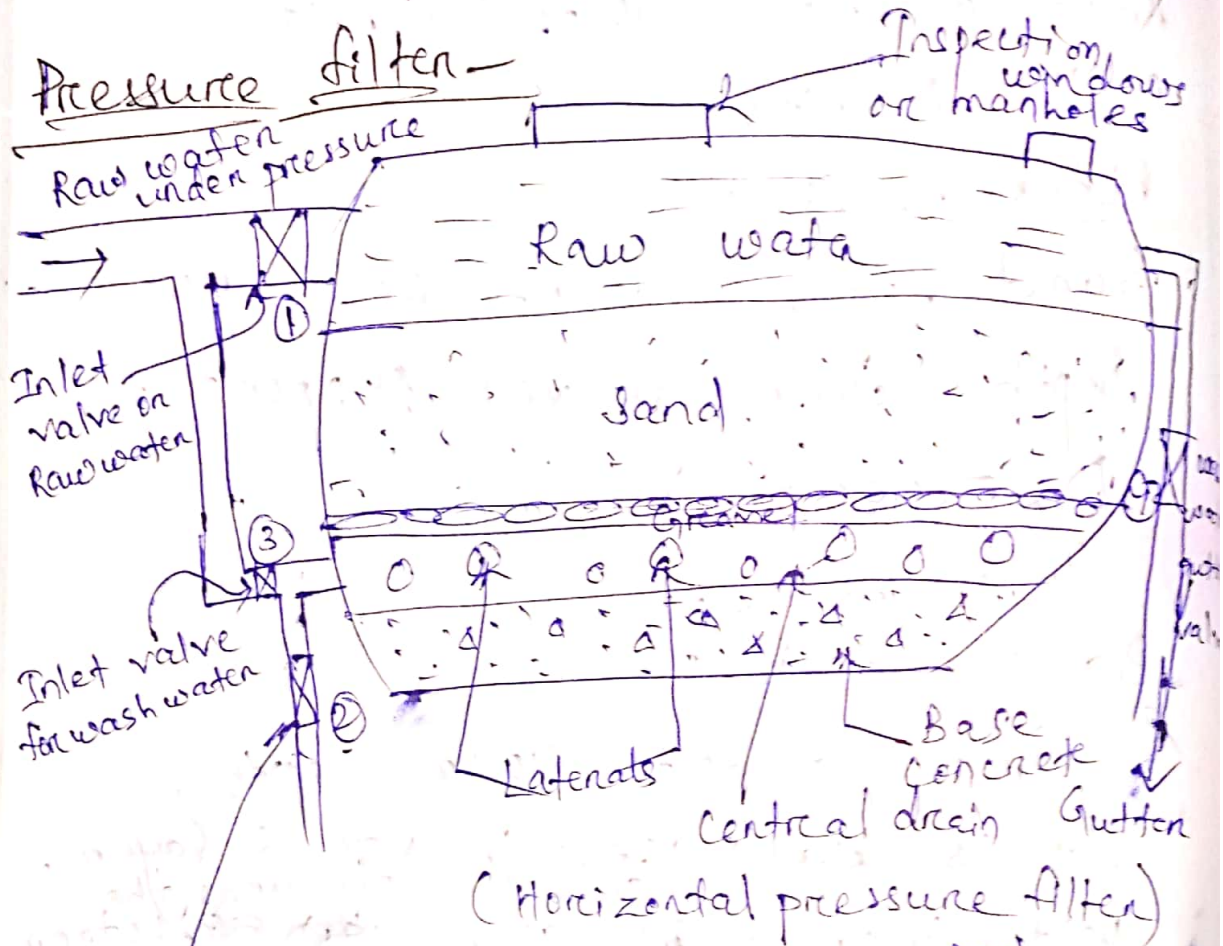 Pressure filter -
Inspection
windows
or manholes
Raw water
under pressure
Raw wate
①
Inlet
valve on
Raw water
Sand.
Gravel
③
Inlet valve
for wash water
②
Laterals
Base
concrete
Central drain
Gutter
(Horizontal pressure filter)